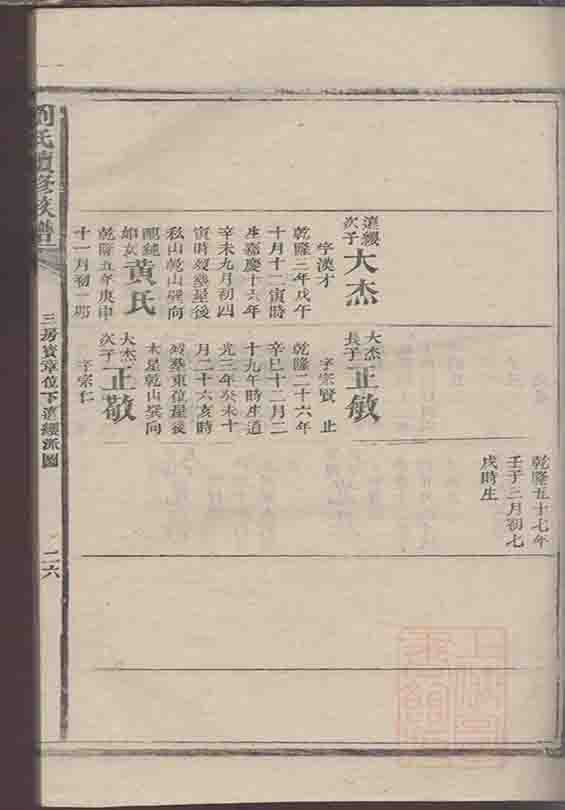 乾隆五十七年
壬子三月初七
戌時生
遠纓
次子
大杰
字漢才
乾隆三年戊午
十月十一寅時
生嘉慶十六年
辛未九月初四
寅時歿葬屋後
私山乾山巽向
配純
如女
黃氏
乾隆五年庚申
十一月初一卯
大杰
長子
正敏
字宗賢 止
乾隆二十六年
辛巳十二月二
十九午時生道
光三年癸未十
月二十六亥時
歿葬東位屋後
木星乾山巽向
大杰
次子
正敬
字宗仁
劉氏續修族譜
三房寶章位下遠纓派圖
二六